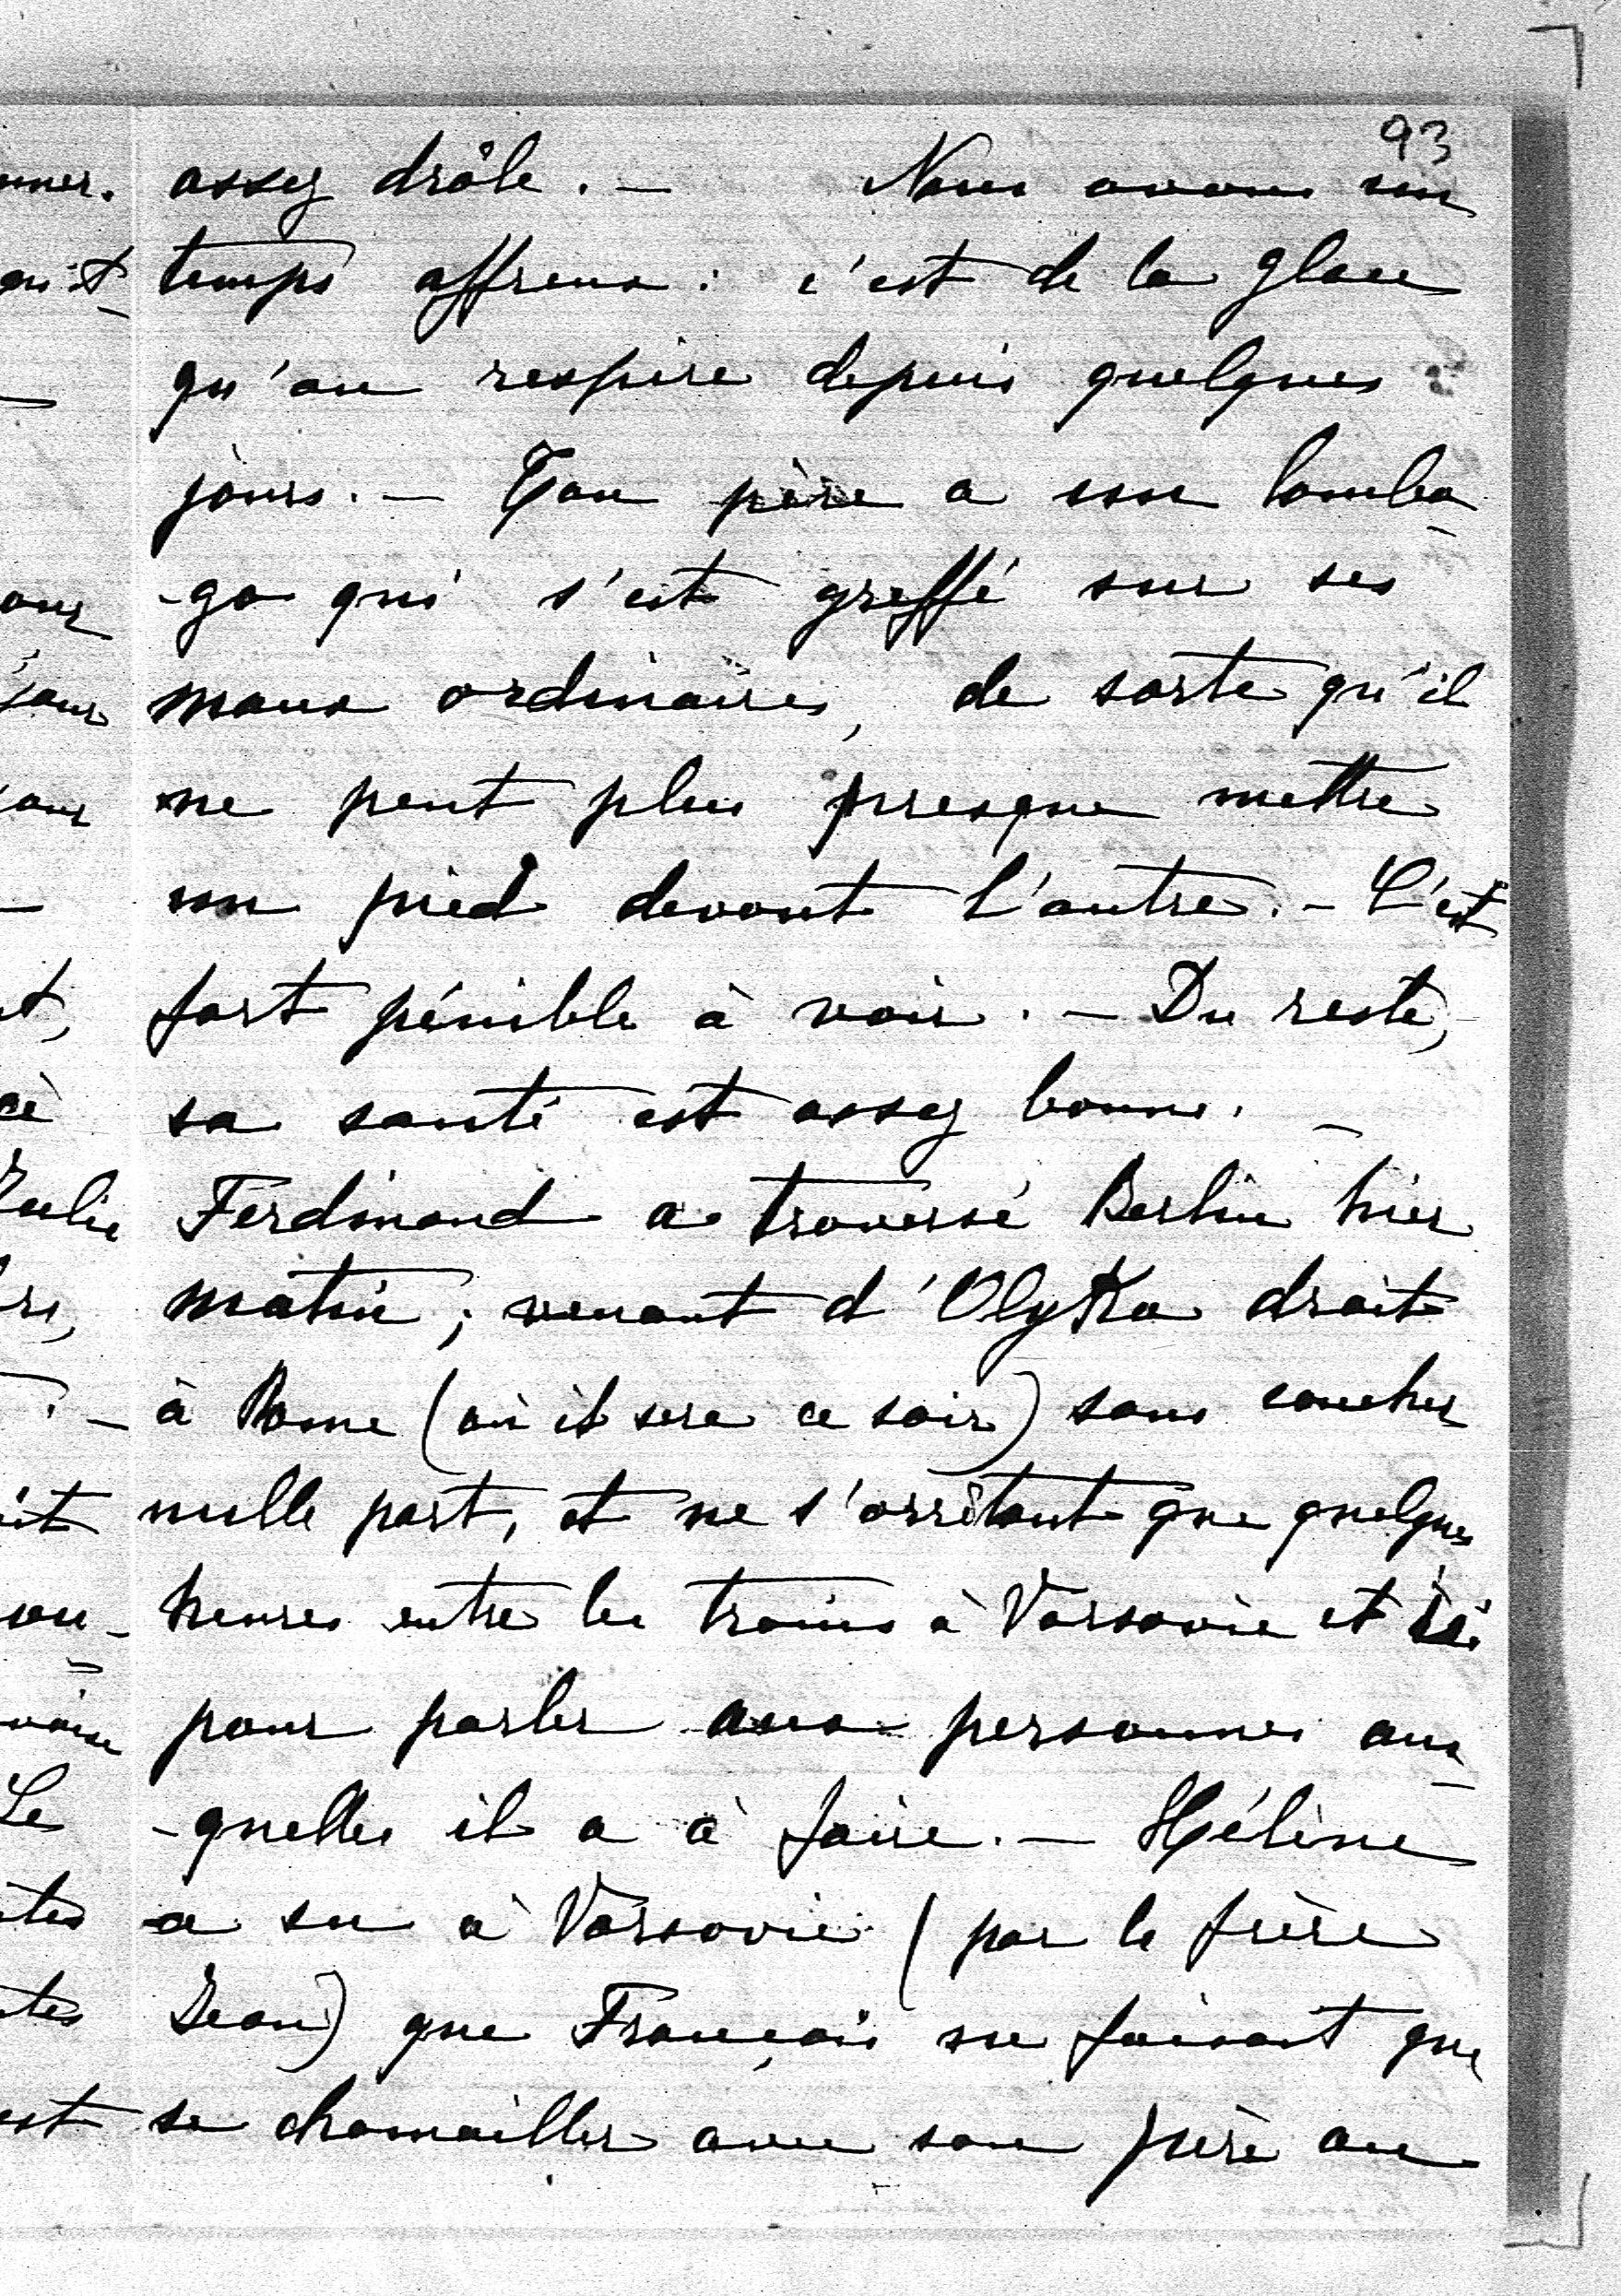 93
assez drôle. — Nous avons un
temps affreux : c'est de la glace
qu'on respire depuis quelques
jours. — Ton père a un lomba-
-go qui s'est greffé sur ses
maux ordinaires, de sorte qu'il
ne peut plus presque mettre
un pied devant l'autre. — C'est
fort pénible à voir. — Du reste,
sa santé est assez bonne. —
Ferdinand a traversé Berlin hier
matin ; venant d'Olyka droit
à Rome (où il sera ce soir) sans coucher
nulle part, et ne s'arrêtant que quelques
heures entre les trains à Varsovie et ici
pour parler aux personnes aux-
-quelles il a à faire. — Hélène
a su à Varsovie (par le frère
Jean) que François ne faisait que
se chamailler avec son père au